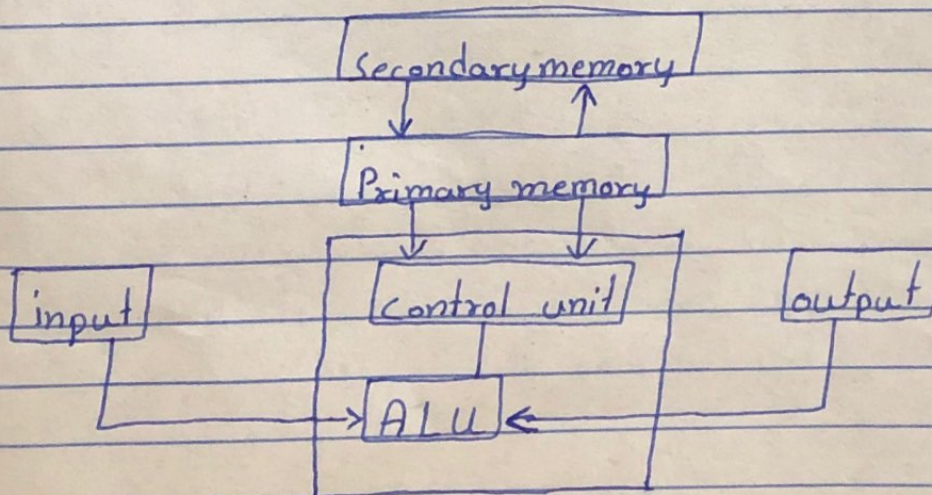 Secondary memory
Primary memory
input
control unit
output
ALU